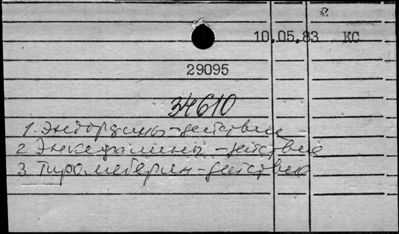 10.05.83 КС
29095
34610
1. Эндорфины - действие
2 Энкефалины - действие
3. Тиролиберин - действие